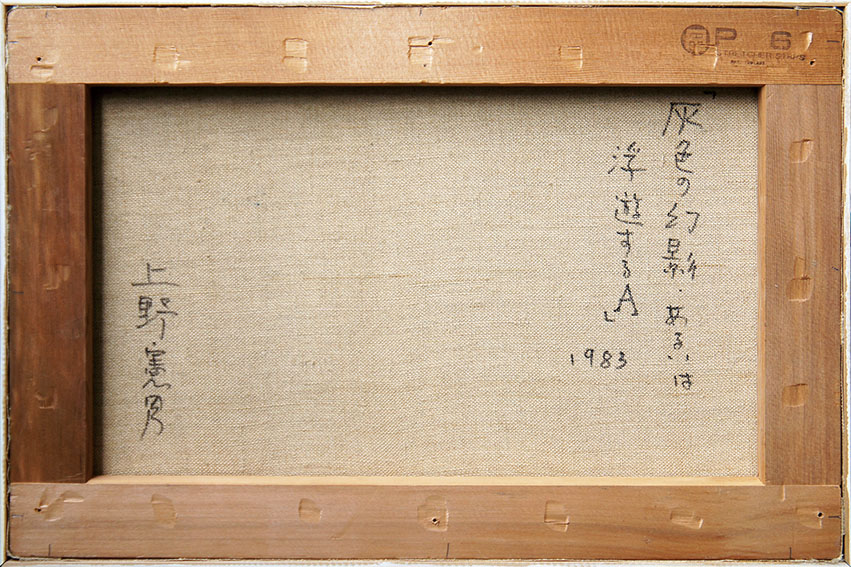 「灰色の幻影・あるいは
浮遊するA」
1983
上野憲男
P 6
STRETCHER STRIPS